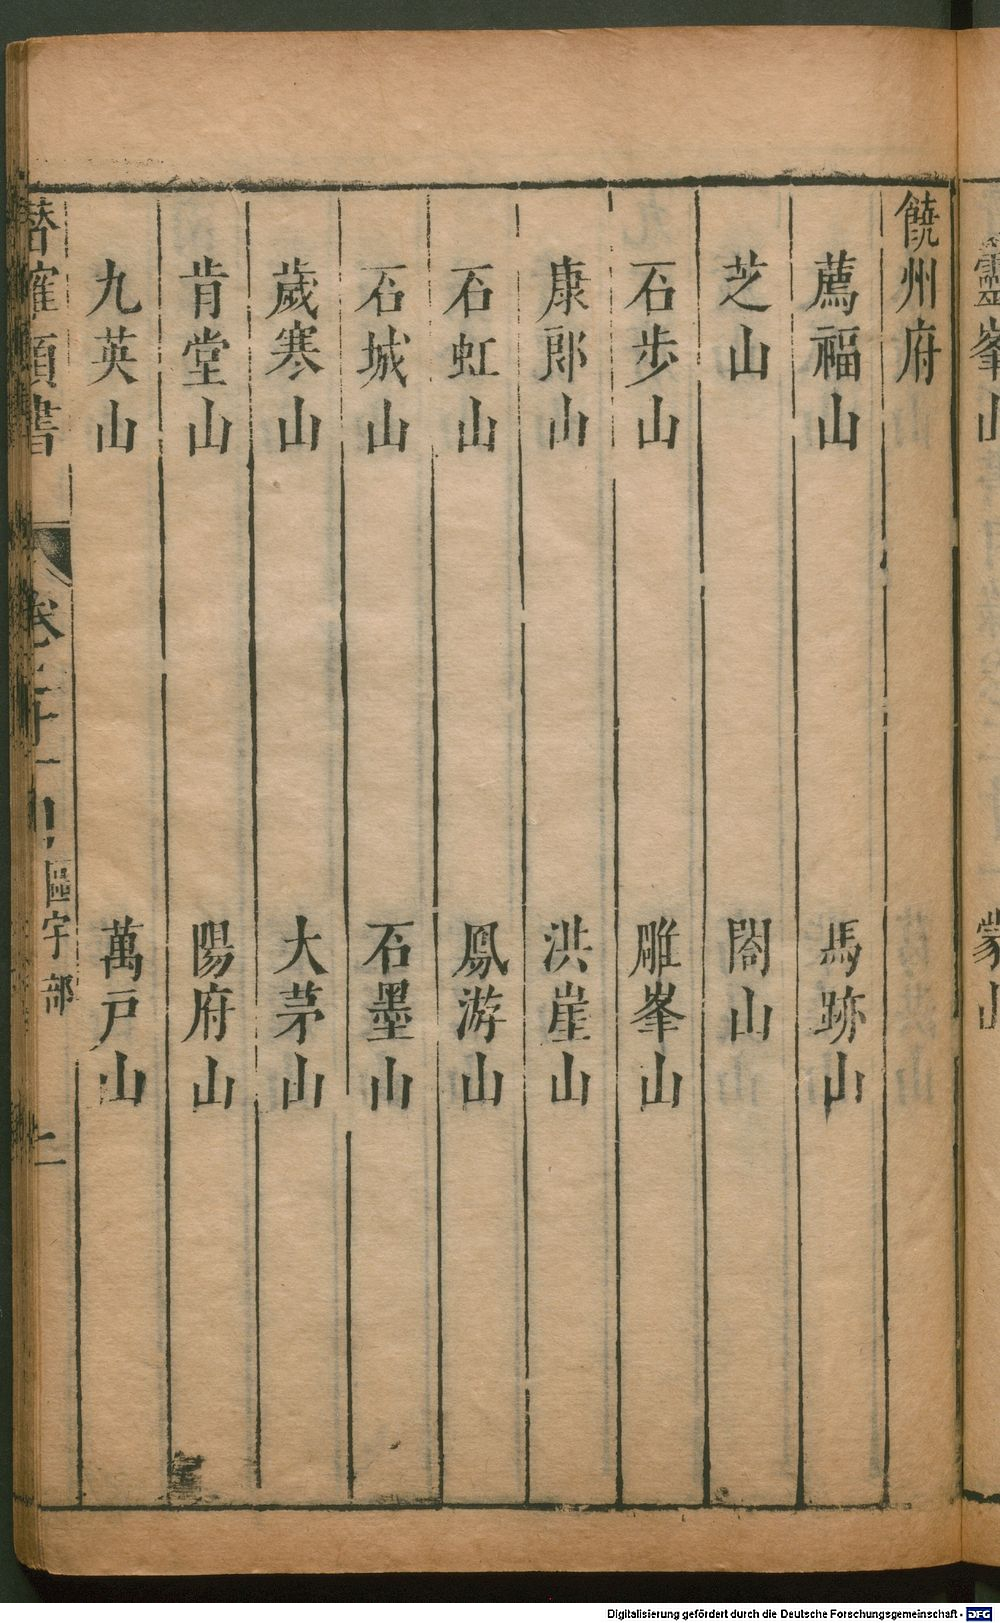 饒州府
薦福山 馬跡山
芝山 閤山
石步山 雕峯山
康郎山 洪崖山
石虹山 鳳游山
石城山 石墨山
歲寒山 大茅山
肯堂山 陽府山
九英山 萬戸山
潛確類書 卷之十 區宇部 二
靈峯山 蒙山
Digitalisierung gefördert durch die Deutsche Forschungsgemeinschaft - DFG